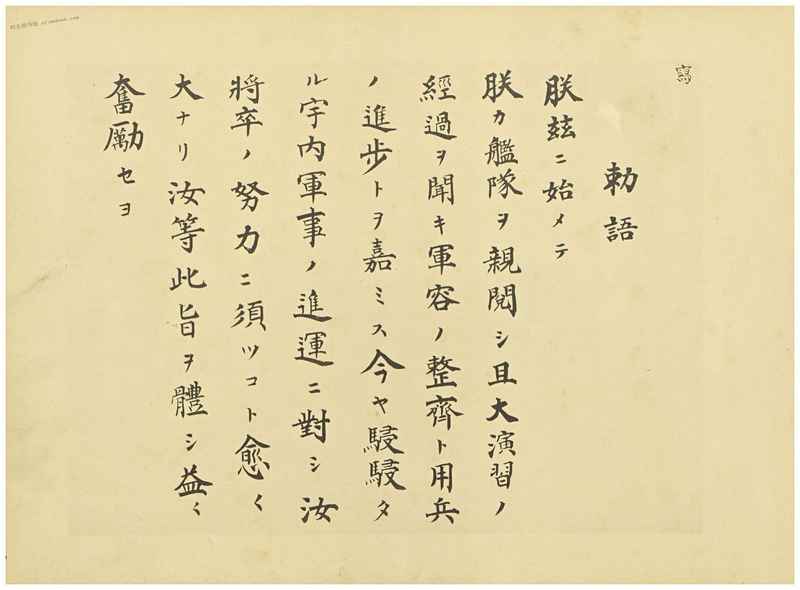 寫
勅語
朕茲ニ始メテ
朕カ艦隊ヲ親閲シ且大演習ノ
經過ヲ聞キ軍容ノ整齊ト用兵
ノ進歩トヲ嘉ミス今ヤ駸駸タ
ル宇内軍事ノ進運ニ對シ汝
將卒ノ努力ニ須ツコト愈〱
大ナリ汝等此旨ヲ體シ益〱
奮勵セヨ